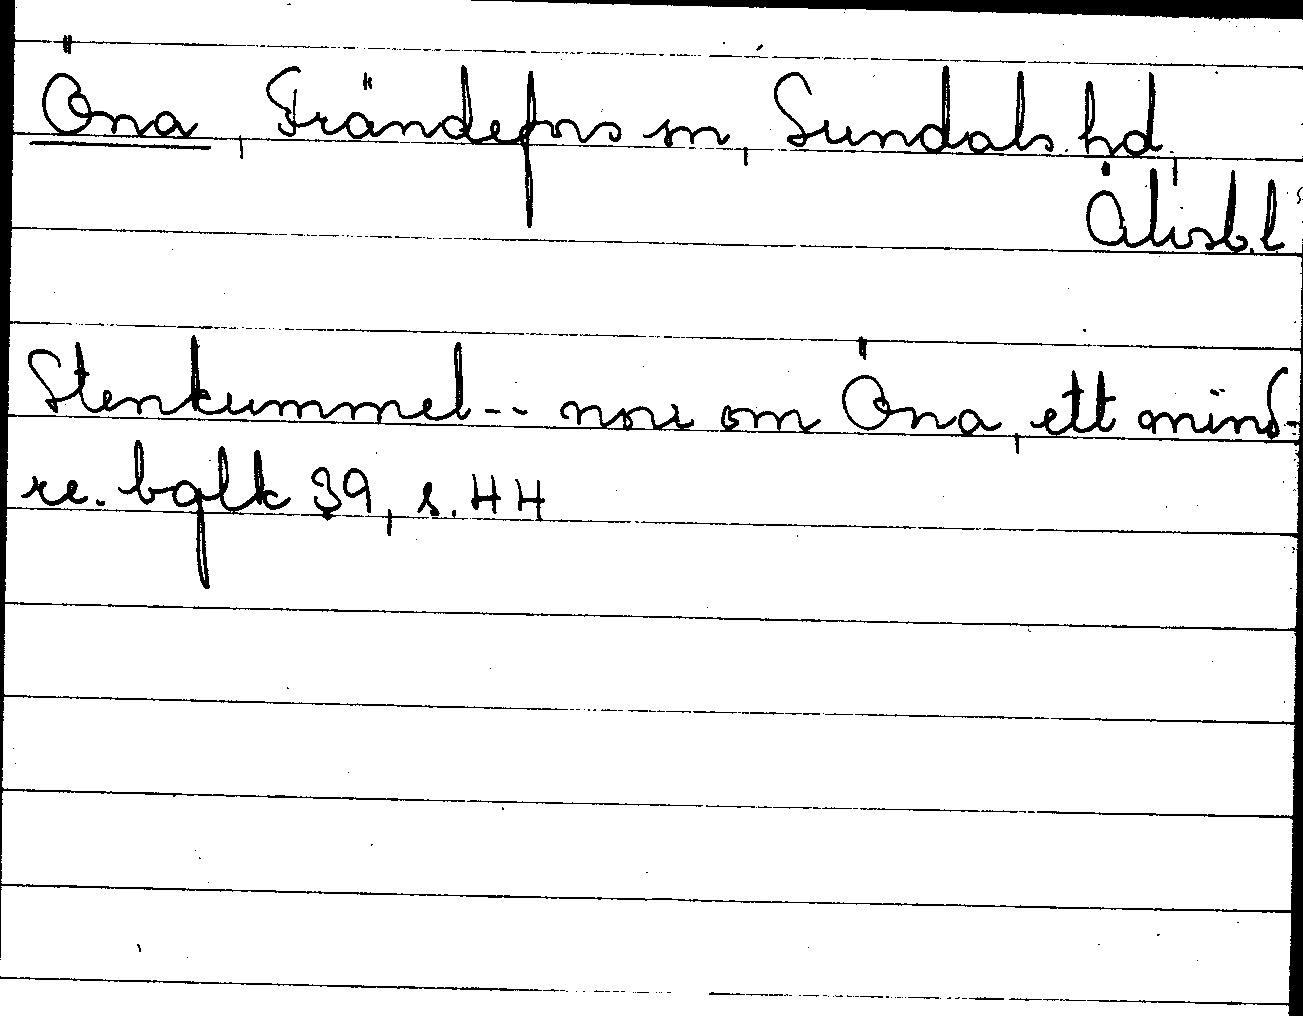 Öna, Frändefors sn, Sundals hd,
Älvsb. l
Stenkummel -- norr om Öna, ett mind-
re. bglk 39, s. 44